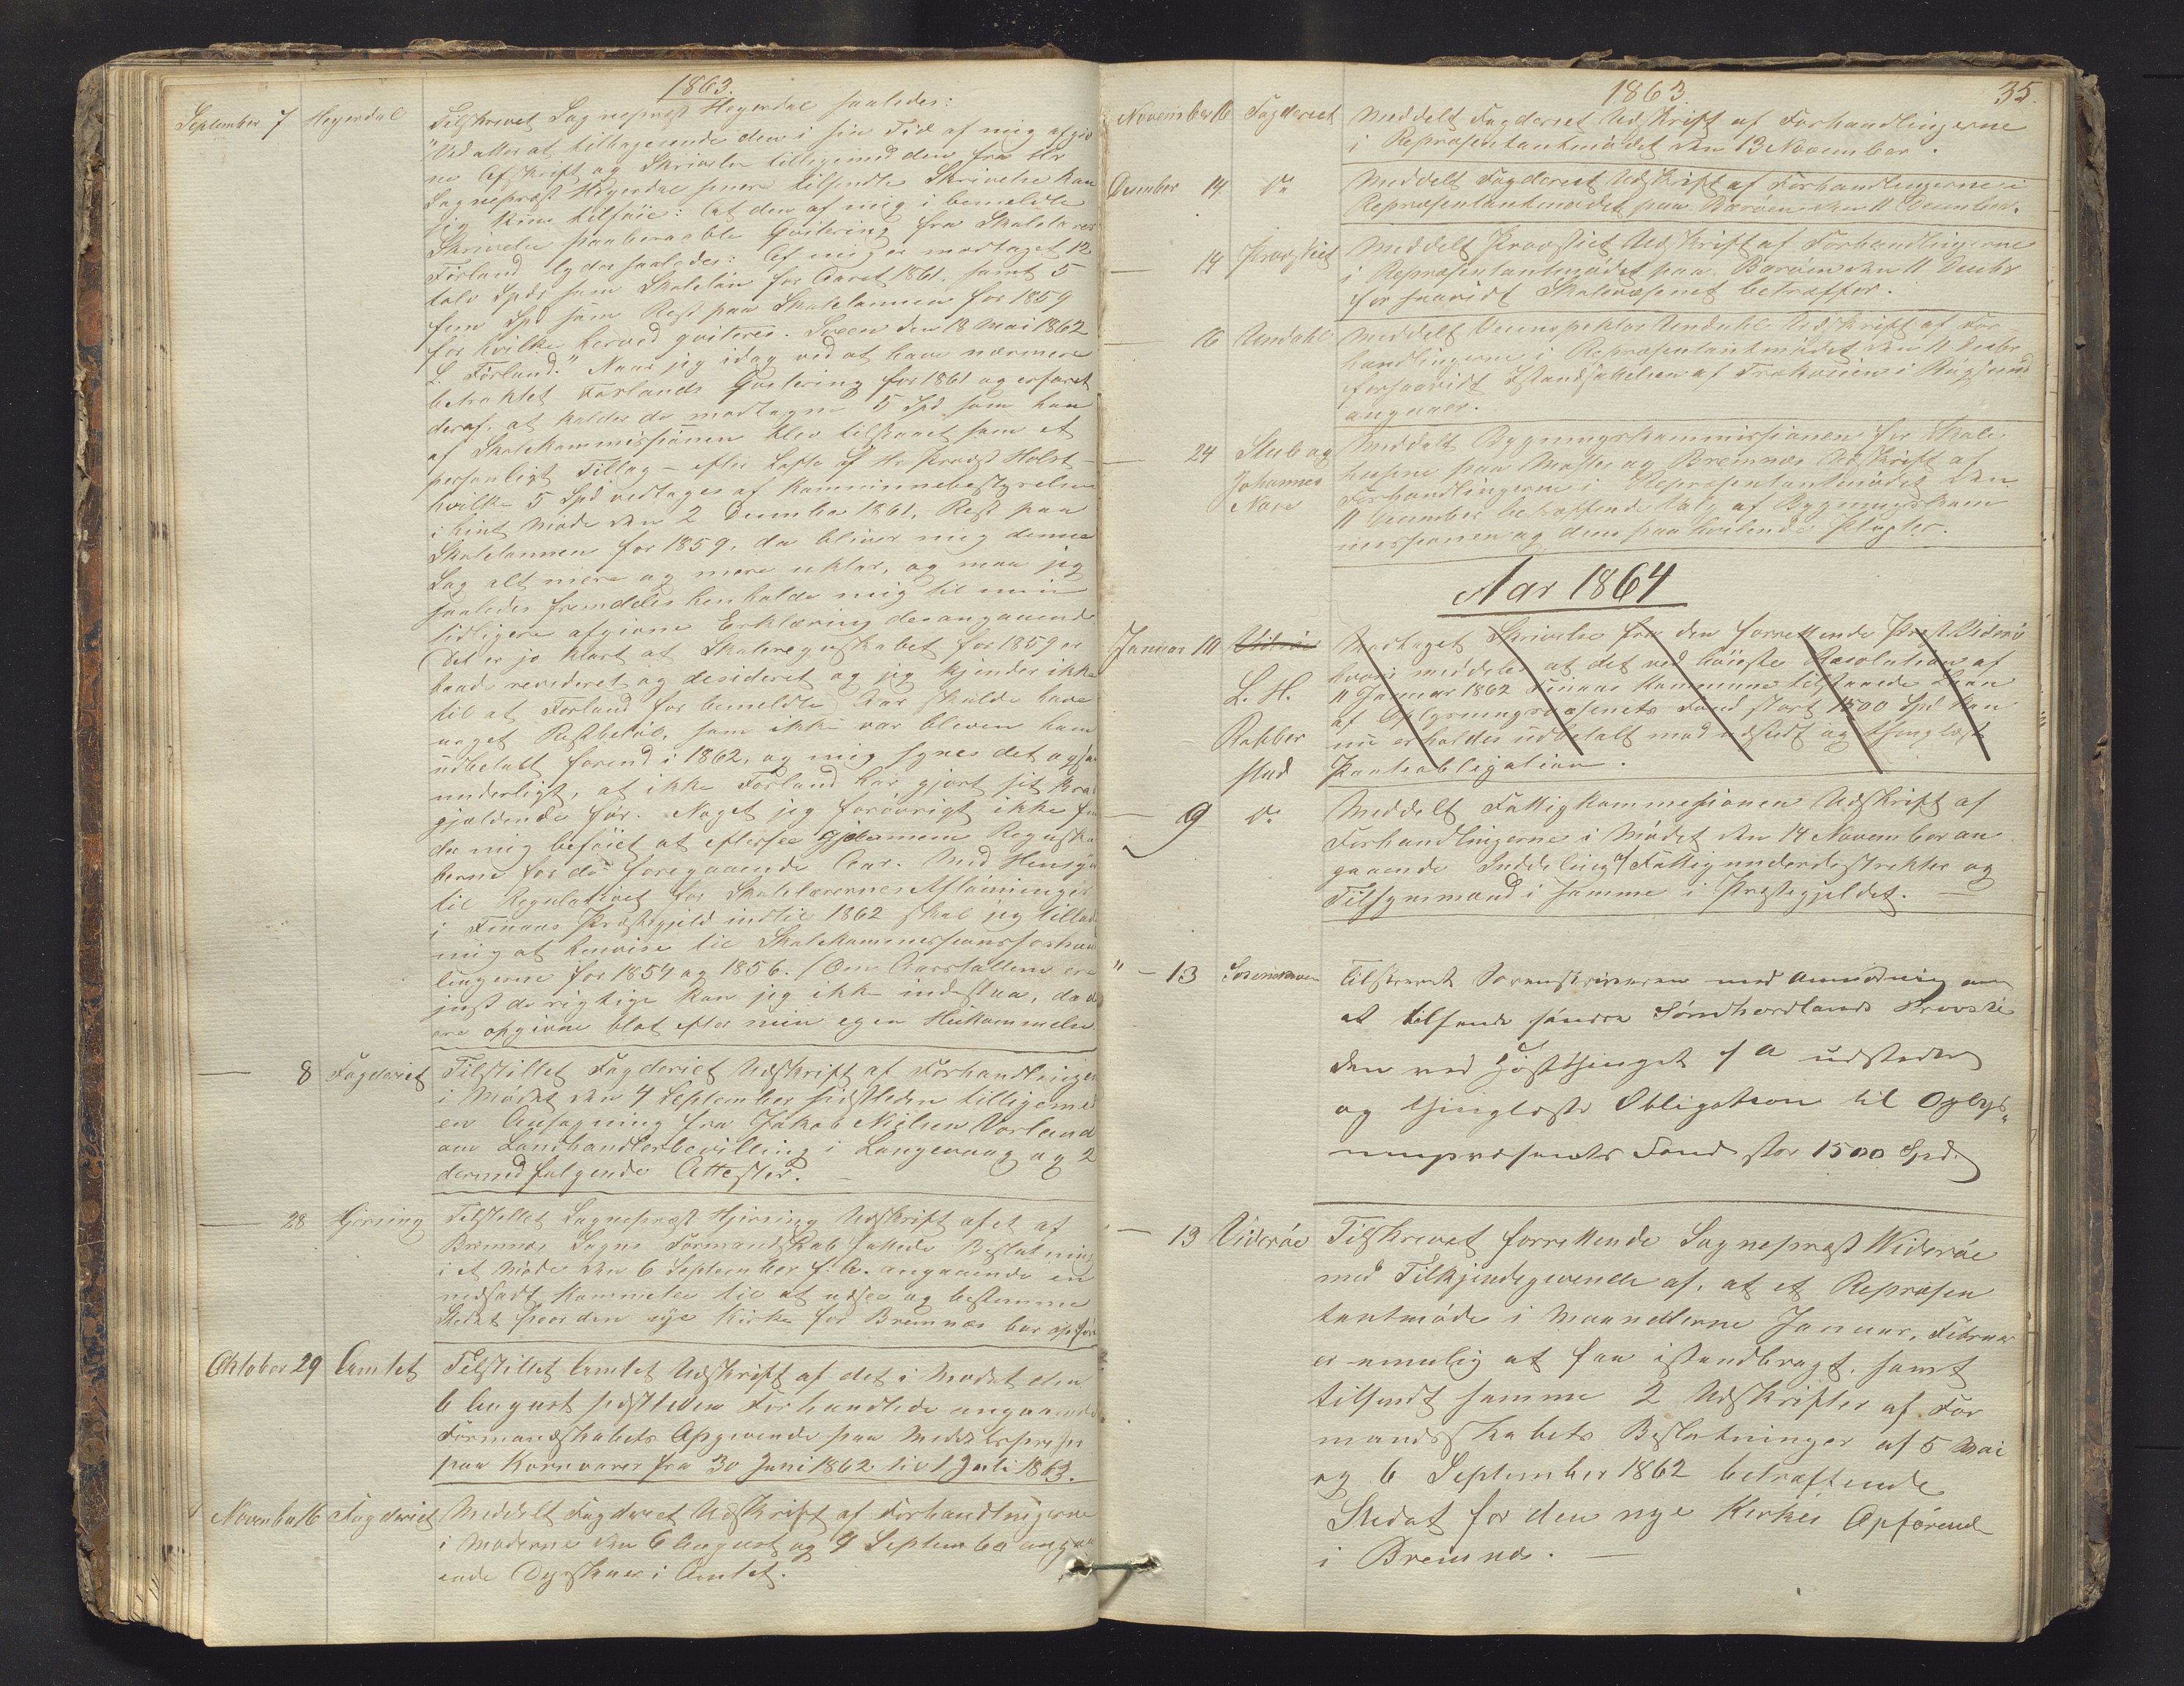 1863.
September 7 Heyerdal Tilskrevet Sogneprest Heyerdal saaledes:
"Ved atter at tilbagesende den i sin Tid af mig afgiv
ne Afskrift og Skrivelse tilligemed den fra Hr
Sogneprest Heyerdal senere tilsendte Skrivelse kan
jeg kun tilføie: At den af mig i bemeldte
Skrivelse paaberaabte Qvitering fra Skolelærer
Førland lyder saaledes: Af mig er modtaget 12
tolv Spd som Skoleløn for Aaret 1861. samt 5
fem Spd som Rest paa Skolelønnen for 1859
for hvilke herved qviteres. Sveen den 18 Mai 1862
L. Førland." Naar jeg idag ved at have nærmere
betraktet Førlands Qvitering for 1861 og erfaret
deraf, at kalder de modtagne 5 Spd som han
af Skolekommissionen blev tilstaaet som et
personligt Tillæg – efter Løfte af Hr Provst Holst –
hvilke 5 Spd vedtages af Kommunebestyrelsen
i hint Møde den 2 December 1861, Rest paa
Skolelønnen for 1859, da bliver mig denne
Sag alt mere og mere uklar, og maa jeg
saaledes fremdeles henholde mig til min
tidligere afgivne Erklæring desangaaende
Det er jo klart at Skoleregnskabet for 1859 er
baade revideret og desideret og jeg kjender ikke
til at Førland for bemeldte Aar skulde have
noget Restbeløb, som ikke var bleven ham
udbetalt forend i 1862, og mig synes det ogsaa
underligt, at ikke Førland har gjort sit Krav
gjældende før. Noget jeg forøvrigt ikke fin
der mig beføiet at eftersee gjennem Regnska
berne for de foregaaende Aar. Med Hensyn
til Regulativet for Skolelærernes Aflønninger
i Finaas Præstegjeld indtil 1862 skal jeg tillade
mig at henvise til Skolekommissionsforhand
lingerne for 1854 og 1856. (Om Aarstallene ere
just de rigtige kan jeg ikke indestaa, da de
ere opgivne blot efter min egen Hukommelse
— 8 Fogderiet Tilstillet Fogderiet Udskrift af Forhandlinger
i Mødet den 4 September sidstleden tilligemed
en Ansøgning fra Jakob Nielsen Vorland
om Landhandlerbevilling i Langevaag og 2
dermed følgende Attester. –
— 28 Hjersing Tilstillet Sogneprest Hjersing Udskrift af et af
Bremnes Sogns Formandskab fattede Beslutning
i et Møde den 6 September f. A. angaaende en
nedsadt Kommitee til at udsee og bestemme
Stedet hvor den nye Kirke for Bremnæs bør opføre
Oktober 29 Amtet Tilstillet Amtet Udskrift af det i Mødet den
6 August sidstleden Forhandlede angaaende
Formandskabets Opgivende paa Middelprisen
paa Kornvarer fra 30 Juni 1862 til 1 Juli 1863.
November 16 Fogderiet Meddelt Fogderiet Udskrift af Forhandlingerne
i Møderne den 6 August og 4 September angaa
ende Dyrskuer i Amtet.
1863. 35.
November 16 Fogderiet Meddelt Fogderiet Udskrift af Forhandlingerne
i Repræsentantmødet den 13 November.
December 14 do Meddelt Fogderiet Udskrift af Forhandlingerne i
Repræsentantmødet paa Børøen den 11 December.
— 14 Provstiet Meddelt Provstiet Udskrift af Forhandlingerne
i Repræsentantmødet paa Børøen den 11 Decbr
forsaavidt Skolevæsenet betræffer.
— 16 Undahl Meddelt Veiinspektør Undahl Udskrift af For-
handlingerne i Repræsentantmødet den 11 Decbr
forsaavidt Istandsættelsen af Trækveien i Røgsund
angaaer.
— 24 Stub og Meddelt Bygningskommissionen for Skole
Johannes husene paa Moster og Bremnes Udskrift af
Næse Forhandlingerne i Repræsentantmødet den
11 December betræffende Valg af Bygningskom
missionen og dens paahvilende Pligter.
Aar 1864
Januar 10 Viderøe Modtaget Skrivelse fra den forrettende Præst Viderø
hvori meddeles at det ved høieste Resolution af
L. H. 11 Januar 1862 Finaas Kommune tilstaaede Laan
af Oplysningsvæsenets Fond stort 1500 Spd kan
Røkber nu erholdes udbetalt mod udstedt og thinglæst
stad Panteobligation.
— 9 do Meddelt Fattigkommissionen Udskrift af
Forhandlingerne i Mødet den 14 November an
gaaende Inddeling af Fattigunderdistrikter og
Tilsynsmænd i samme i Præstegjeldet. —
" – 13 Sorenskriveren Tilskrevet Sorenskriveren med Anmodning om
at tilsende søndre Søndhordlands Provsti
den ved Høstthinget f A udstedte
og thinglæste Obligation til Oplys„
ningsvæsenets Fond stor 1500 Spd.
— 13 Viderøe Tilskrevet forrettende Sogneprest Widerøe
med Tilkjendegivende af, at et Repræsen
tantmøde i Maanederne Januar, Februar
er umulig at faa istandbragt, samt
tilsendt samme 2 Udskrifter af For
mandskabets Beslutninger af 5 Mai
og 6 September 1862 betræffende
Stedet for den nye Kirkes Opførende
i Bremnes. —